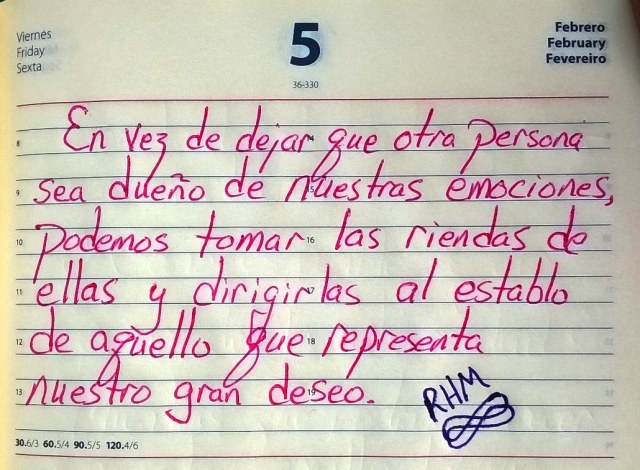 Viernes
Friday
Sexta
5
36-330
Febrero
February
Fevereiro
8 En vez de dejar que otra persona
9 sea dueño de nuestras emociones,
10 podemos tomar 16 las riendas de
11 ellas y dirigirlas al establo
12 de aquello que 18 representa
13 nuestro gran deseo.
RHM
30.6/3 60.5/4 90.5/5 120.4/6